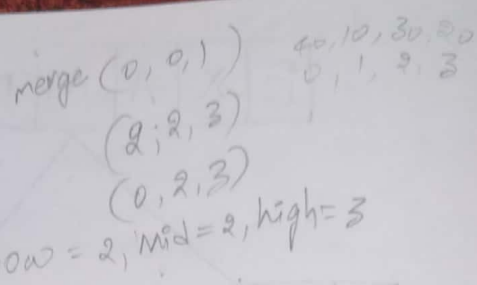 merge (0, 0, 1)
40, 10, 30, 20
0, 1, 2, 3
(2, 2, 3)
(0, 2, 3)
ow = 2, Mid = 2, high = 3